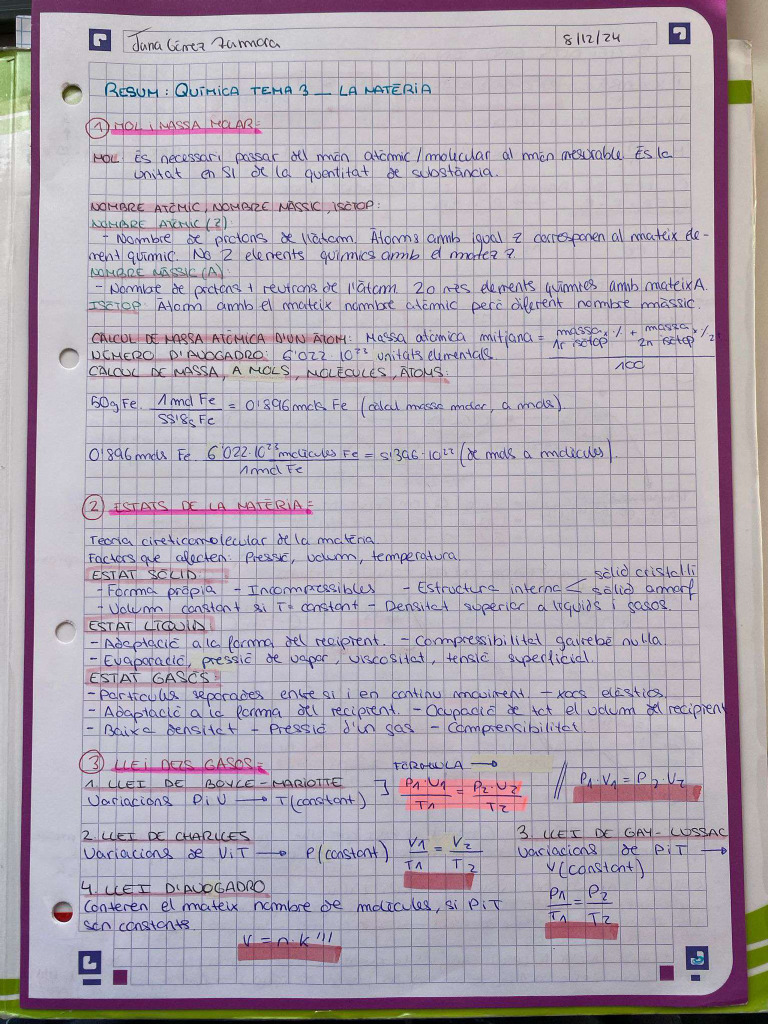 Jana Gómez Zamora 8/12/24
RESUM: QUÍMICA TEMA 3 _ LA MATÈRIA
1 MOL I MASSA MOLAR:
MOL: És necessari passar del món atòmic/molecular al món mesurable És la
unitat en SI de la quantitat de substància.
NOMBRE ATÒMIC, NOMBRE MÀSSIC, ISÒTOP:
NOMBRE ATÒMIC (Z):
- Nombre de protons de l'àtom. Àtoms amb igual Z corresponen al mateix ele-
ment químic. No 2 elements químics amb el mateix Z.
NOMBRE MÀSSIC (A):
- Nombre de protons + neutrons de l'àtom 2 o més elements químics amb mateix A.
ISÒTOP: Àtom amb el mateix nombre atòmic però diferent nombre màssic.
CÀLCUL DE MASSA ATÒMICA D'UN ÀTOM: Massa atòmica mitjana = massa 1r isòtop x % + massa 2n isòtop x % 2 / 100
NÚMERO D'AVOGADRO: 6'022 · 10²³ unitats elementals
CÀLCUL DE MASSA, A MOLS, MOLÈCULES, ÀTOMS:
50g Fe · 1 mol Fe / 55'8g Fe = 0'896 mols Fe (càlcul massa molar, a mols)
0'896 mols Fe · 6'022·10²³ molècules Fe / 1 mol Fe = 5'396·10²³ (de mols a molècules).
2 ESTATS DE LA MATÈRIA:
Teoria cineticomolecular de la matèria
Factors que afecten: Pressió, volum, temperatura.
ESTAT SÒLID:
- Forma pròpia - Incompressibles - Estructura interna < sòlid cristal·lí
sòlid amorf
- Volum constant si T = constant - Densitat superior a líquids i gasos.
ESTAT LÍQUID
- Adaptació a la forma del recipient. - Compressibilitat gairebé nul·la
- Evaporació, pressió de vapor, viscositat, tensió superficial.
ESTAT GASÓS:
- Partícules separades entre si i en continu moviment - xocs elàstics
- Adaptació a la forma del recipient. - Ocupació de tot el volum del recipient
- Baixa densitat - Pressió d'un gas - Comprensibilitat.
3 LLEI DELS GASOS:
FÓRMULA →
1. LLEI DE BOYLE-MARIOTTE
Variacions P i V → T (constant) ] P₁·V₁ / T₁ = P₂·V₂ / T₂ // P₁·V₁ = P₂·V₂
2. LLEI DE CHARLLES
Variacions de V i T → P (constant) V₁ / T₁ = V₂ / T₂
3. LLEI DE GAY-LUSSAC
Variacions de P i T →
V (constant)
P₁ / T₁ = P₂ / T₂
4. LLEI D'AVOGADRO
Contenen el mateix nombre de molècules, si P i T
són constants
V = n · k'''